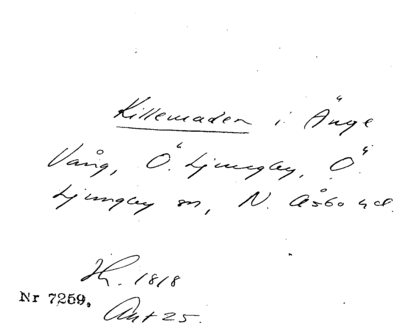 Killemaden i "Änge
Vång, Ö. Ljungby, Ö."
Ljungby sn, N. Åsbo hd.
Jh. 1818
Nr 7259.
Ant 25.